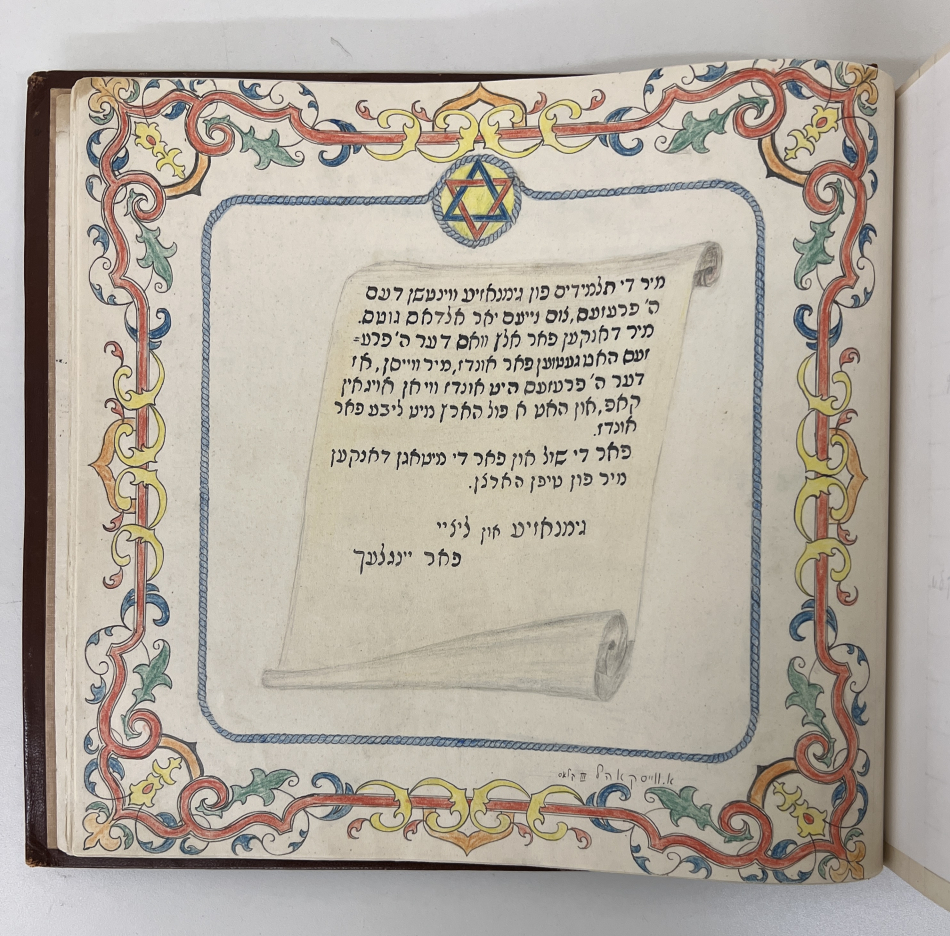 מיר די תלמידים פון גימנאזיע ווינטשן דעם
ה' פרעזעס, צום נייעם יאר אלדאס גוטס.
מיר דאנקען פאר אלץ וואס דער ה' פרע=
זעס האט געטוען פאר אונדז, מיר ווייסן, אז
דער ה' פרעזעס היט אונדז ווי אן אויג אין
קאפ, און האט א פול הארץ מיט ליבע פאר
אונדז.
פאר די שול און פאר די מיטאגן דאנקען
מיר פון טיפן הארצן.
גימנאזיע און ליציי
פאר יינגלעך
א. ווייסקאהל III קלאס